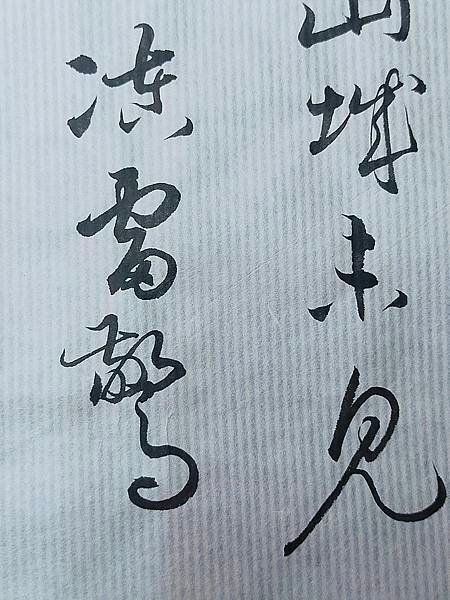 山城未見
凍雷驚